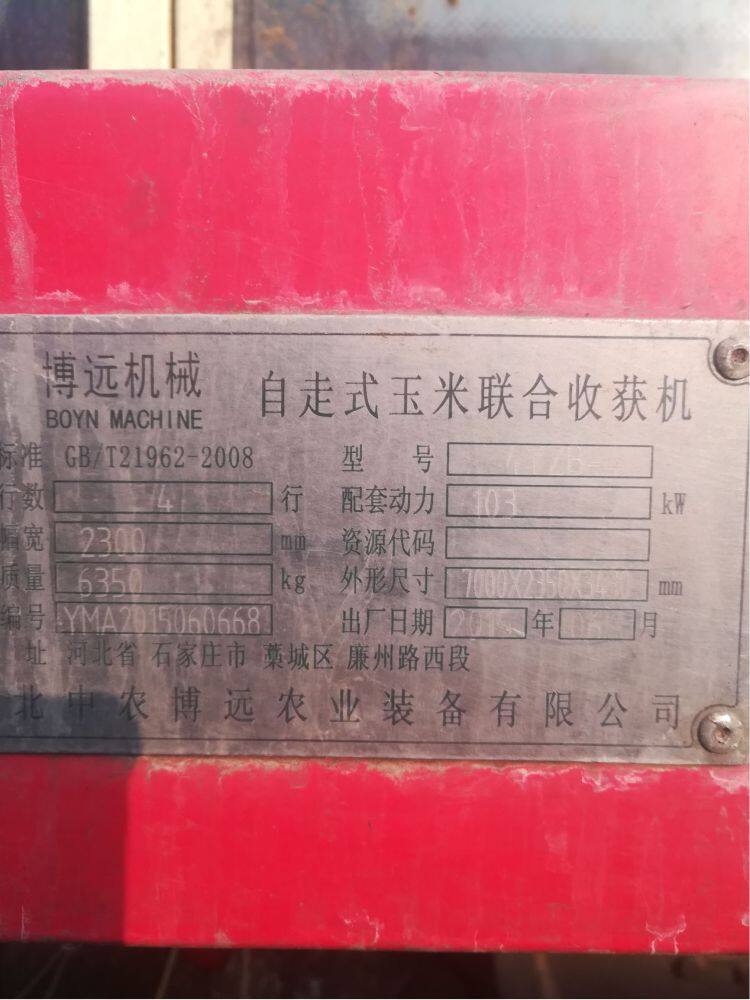 博远机械
BOYN MACHINE
自走式玉米联合收获机
标准 GB/T21962-2008 型 号
行数 4 行 配套动力 103 kW
幅宽 2300 mm 资源代码
质量 6350 kg 外形尺寸 mm
编号 YMA2015060668 出厂日期 年 06 月
址 河北省 石家庄市 藁城区 廉州路西段
北中农博远农业装备有限公司